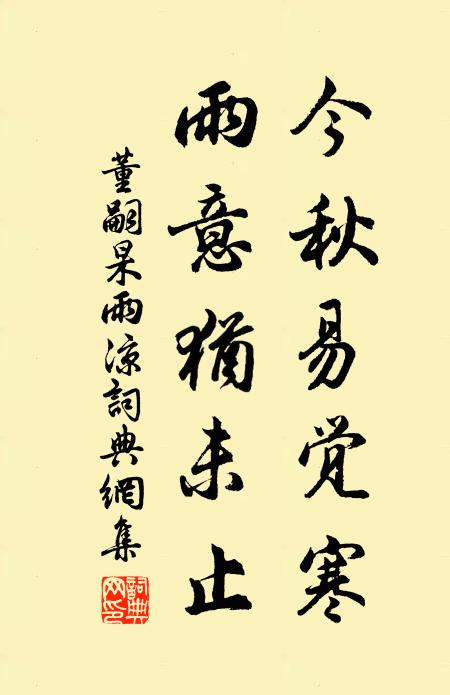 今秋易觉寒
雨意猶未止
董嗣杲雨涼詞典網集
詞典網印